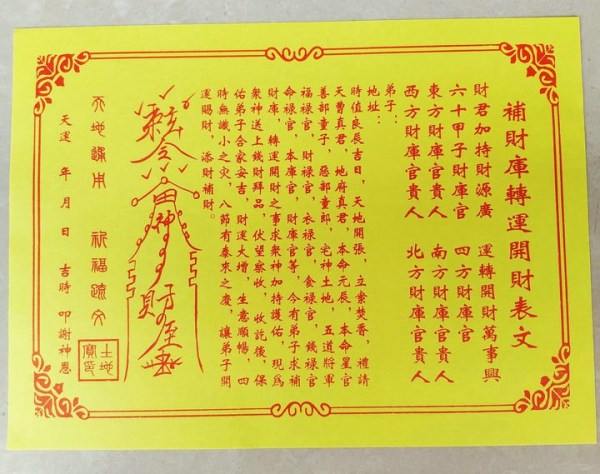 補財庫轉運開財表文
財君加持財源廣 運轉開財萬事興
六十甲子財庫官 四方財庫官
東方財庫官貴人 南方財庫官貴人
西方財庫官貴人 北方財庫官貴人
弟子：
地址：
時值良辰吉日，天地開張，立案焚香，禮請
天曹真君，地府真君，本命元辰，本命星官
善部童子，惡部童郎，宅神土地，五道將軍
福祿官，財祿官，衣祿官，食祿官，錢祿官
命祿官，本庫官，財庫官等，今有弟子求補
財庫，轉運開財之事求衆神加持護佑，現爲
衆神送上錢財拜品，伏望察收，收訖後，保
佑弟子合家安吉，財運大增，生意順暢，四
時無讖小之灾，八節有泰來之慶，讓弟子開
運賜財，添財補財。
天地通用 祈福疏文
土地寶印
天運 年 月 日 吉時 叩謝神恩